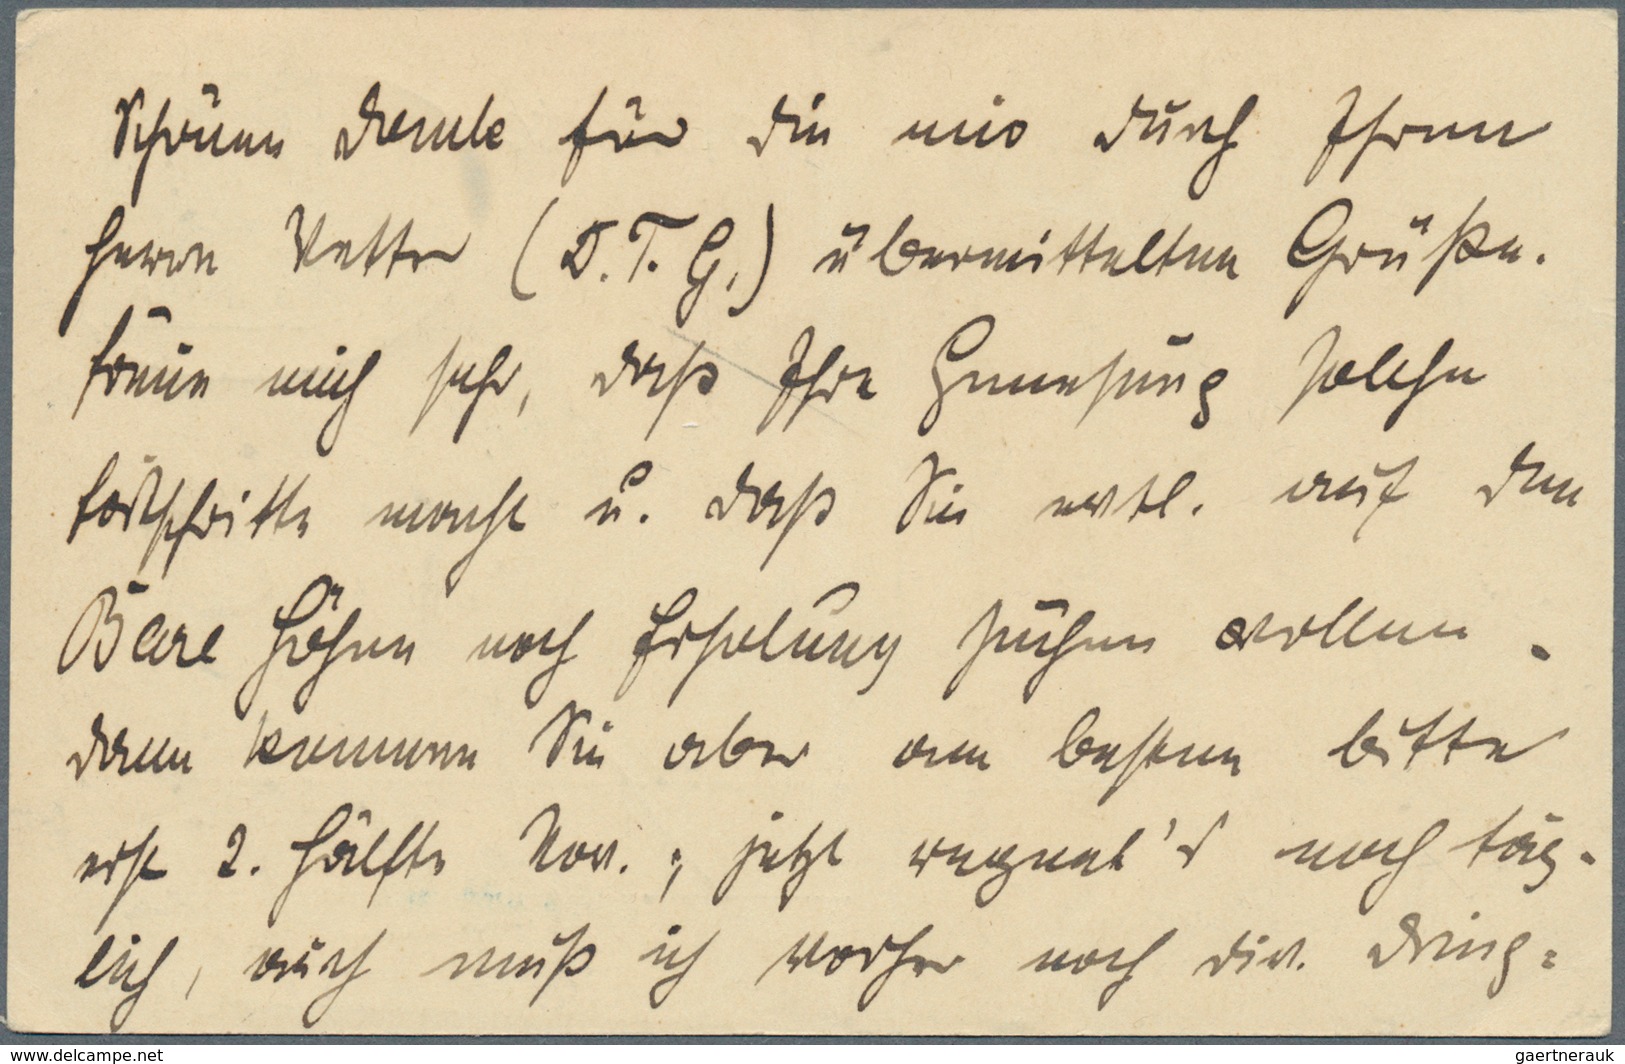 Schönen Dank für die mir durch Ihren
Herrn Vetter (D.T.G.) übermittelten Grüße.
Freue mich sehr, daß Ihre Genesung solche
Fortschritte macht u. daß Sie evtl. auf den
Bare Höhen noch Erholung suchen wollen.
Dann kommen Sie aber am besten bitte
erst 2. Hälfte Nov.; jetzt regnet's noch täg-
lich, auch muß ich vorher noch div. Dring=
www.delcampe.net
gaertnerauk